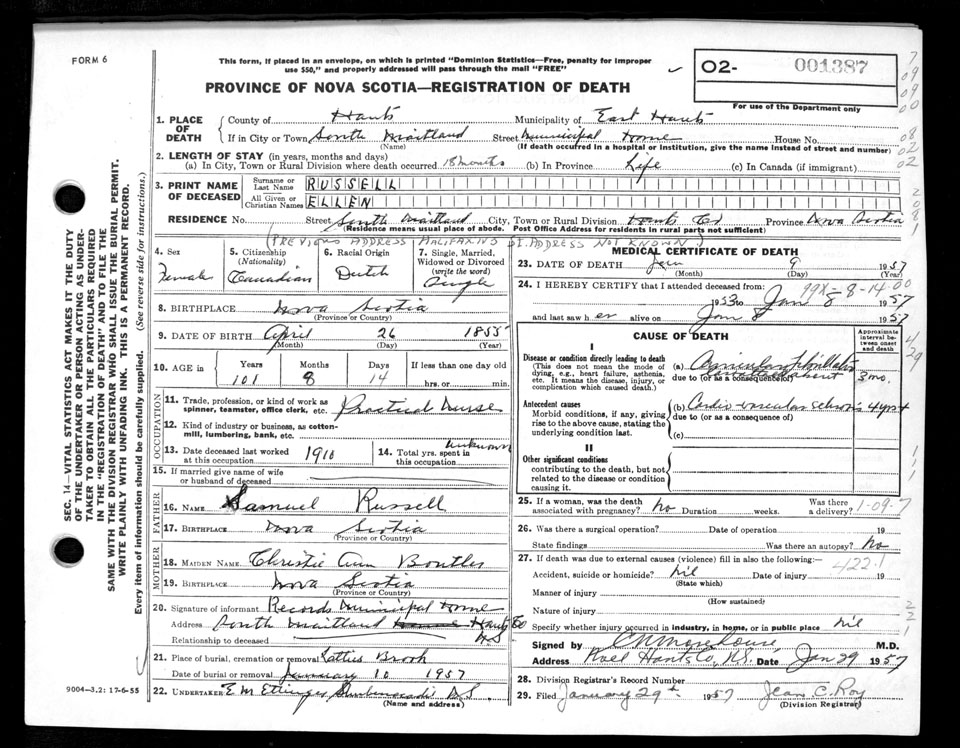 FORM 6
This form, if placed in an envelope, on which is printed "Dominion Statistics—Free, penalty for improper
use $50," and properly addressed will pass through the mail "FREE"
PROVINCE OF NOVA SCOTIA—REGISTRATION OF DEATH
02- 001387
For use of the Department only
1. PLACE OF DEATH
County of Hants Municipality of East Hants
If in City or Town South Maitland Street Municipal Home House No.
(Name) (If death occurred in a hospital or institution, give the name instead of street and number)
2. LENGTH OF STAY (in years, months and days)
(a) In City, Town or Rural Division where death occurred 18 months (b) In Province Life (c) In Canada (if immigrant)
3. PRINT NAME OF DECEASED
Surname or Last Name RUSSELL
All Given or Christian Names ELLEN
RESIDENCE No. Street South Maitland City, Town or Rural Division Hants Co Province Nova Scotia
(Residence means usual place of abode. Post Office Address for residents in rural parts not sufficient)
(PREVIOUS ADDRESS HALIFAX NS ST. ADDRESS NOT KNOWN)
4. Sex Female
5. Citizenship (Nationality) Canadian
6. Racial Origin Dutch
7. Single, Married, Widowed or Divorced (write the word) Single
8. BIRTHPLACE Nova Scotia
(Province or Country)
9. DATE OF BIRTH April 26 1855
(Month) (Day) (Year)
10. AGE in Years 101 Months 8 Days 14 If less than one day old hrs. or min.
OCCUPATION
11. Trade, profession, or kind of work as spinner, teamster, office clerk, etc. Practical Nurse
12. Kind of industry or business, as cotton-mill, lumbering, bank, etc.
13. Date deceased last worked at this occupation 1910 14. Total yrs. spent in this occupation unknown
15. If married give name of wife or husband of deceased
FATHER
16. NAME Samuel Russell
17. BIRTHPLACE Nova Scotia
(Province or Country)
MOTHER
18. MAIDEN NAME Christie Ann
19. BIRTHPLACE Nova Scotia
(Province or Country)
20. Signature of informant Records Municipal Home
Address South Maitland Hants Co N.S
Relationship to deceased
21. Place of burial, cremation or removal Latties Brook
Date of burial or removal January 10 1957
22. UNDERTAKER E. M. Ettinger N.S.
(Name and address)
MEDICAL CERTIFICATE OF DEATH
23. DATE OF DEATH Jan 9 1957
(Month) (Day) (Year)
24. I HEREBY CERTIFY that I attended deceased from:
99X-8-14.00
1953 to Jan 8 1957
and last saw her alive on Jan 8 1957
CAUSE OF DEATH
Approximate interval between onset and death
I
Disease or condition directly leading to death
(This does not mean the mode of dying, e.g., heart failure, asthenia, etc. It means the disease, injury, or complication which caused death.)
(a) Auricular Fibrillation
due to (or as a consequence of) 3 mo.
Antecedent causes
Morbid conditions, if any, giving rise to the above cause, stating the underlying condition last.
(b) Cardio-vascular sclerosis 4 yrs +
due to (or as a consequence of)
(c)
II
Other significant conditions
contributing to the death, but not related to the disease or condition causing it.
25. If a woman, was the death associated with pregnancy? No Duration weeks. Was there a delivery? 1-09-7
26. Was there a surgical operation? Date of operation 19
State findings Was there an autopsy? No
27. If death was due to external causes (violence) fill in also the following:—
422.1
Accident, suicide or homicide? Nil Date of injury 19
(State which)
Manner of injury
(How sustained)
Nature of injury
Specify whether injury occurred in industry, in home, or in public place Nil
Signed by C N Morehouse M.D.
Address Noel Hants Co, N.S. Date Jan 29 1957
28. Division Registrar's Record Number
29. Filed January 29th 1957 Jean C. Roy
(Division Registrar)
SEC. 14—VITAL STATISTICS ACT MAKES IT THE DUTY
OF THE UNDERTAKER OR PERSON ACTING AS UNDER-
TAKER TO OBTAIN ALL THE PARTICULARS REQUIRED
IN THE "REGISTRATION OF DEATH" AND TO FILE THE
SAME WITH THE DIVISION REGISTRAR WHO SHALL ISSUE THE BURIAL PERMIT.
WRITE PLAINLY WITH UNFADING INK. THIS IS A PERMANENT RECORD.
Every item of information should be carefully supplied. (See reverse side for instructions.)
9004-3.2: 17-6-55